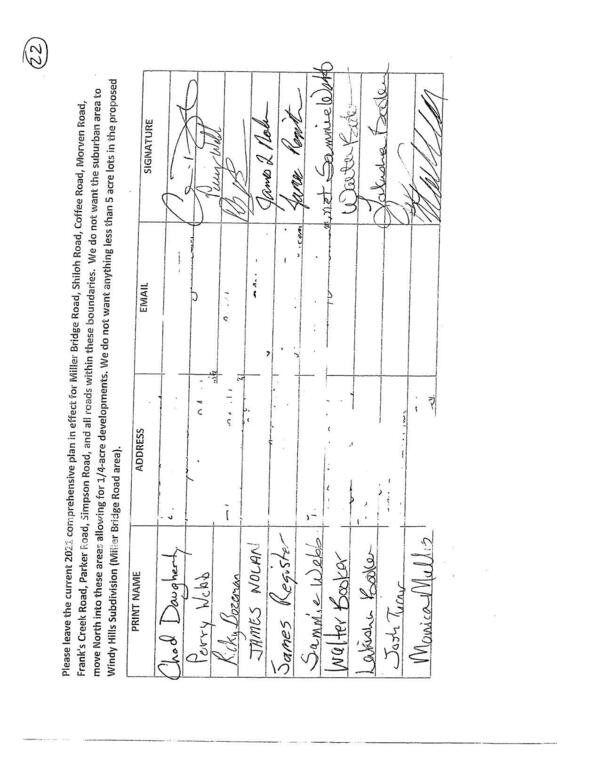 22
Please leave the current 2021 comprehensive plan in effect for Miller Bridge Road, Shiloh Road, Coffee Road, Morven Road,
Frank's Creek Road, Parker Road, Simpson Road, and all roads within these boundaries. We do not want the suburban area to
move North into these areas allowing for 1/4-acre developments. We do not want anything less than 5 acre lots in the proposed
Windy Hills Subdivision (Miller Bridge Road area).
PRINT NAME ADDRESS EMAIL SIGNATURE
Chad Daugherty
Perry Webb Perry Webb
Ricky Bozeman
JAMES NOLAN
James Register
Sammie Webb .net Sammie Webb
Walter Booker Walter
Lakisha Booker Lakisha Booker
Josh Turner
Monica Mullis